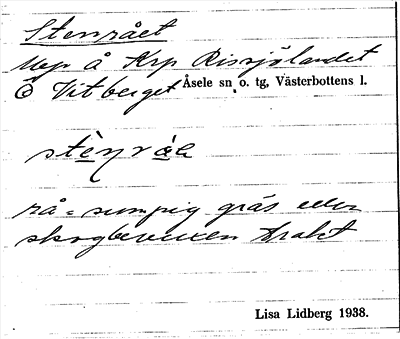 Stenrået
Mep å Krp Rissjölandet
Ö Vitberget Åsele sn o. tg, Västerbottens l.
rå = sumpig gräs eller
skogbevuxen trakt
Lisa Lidberg 1938.